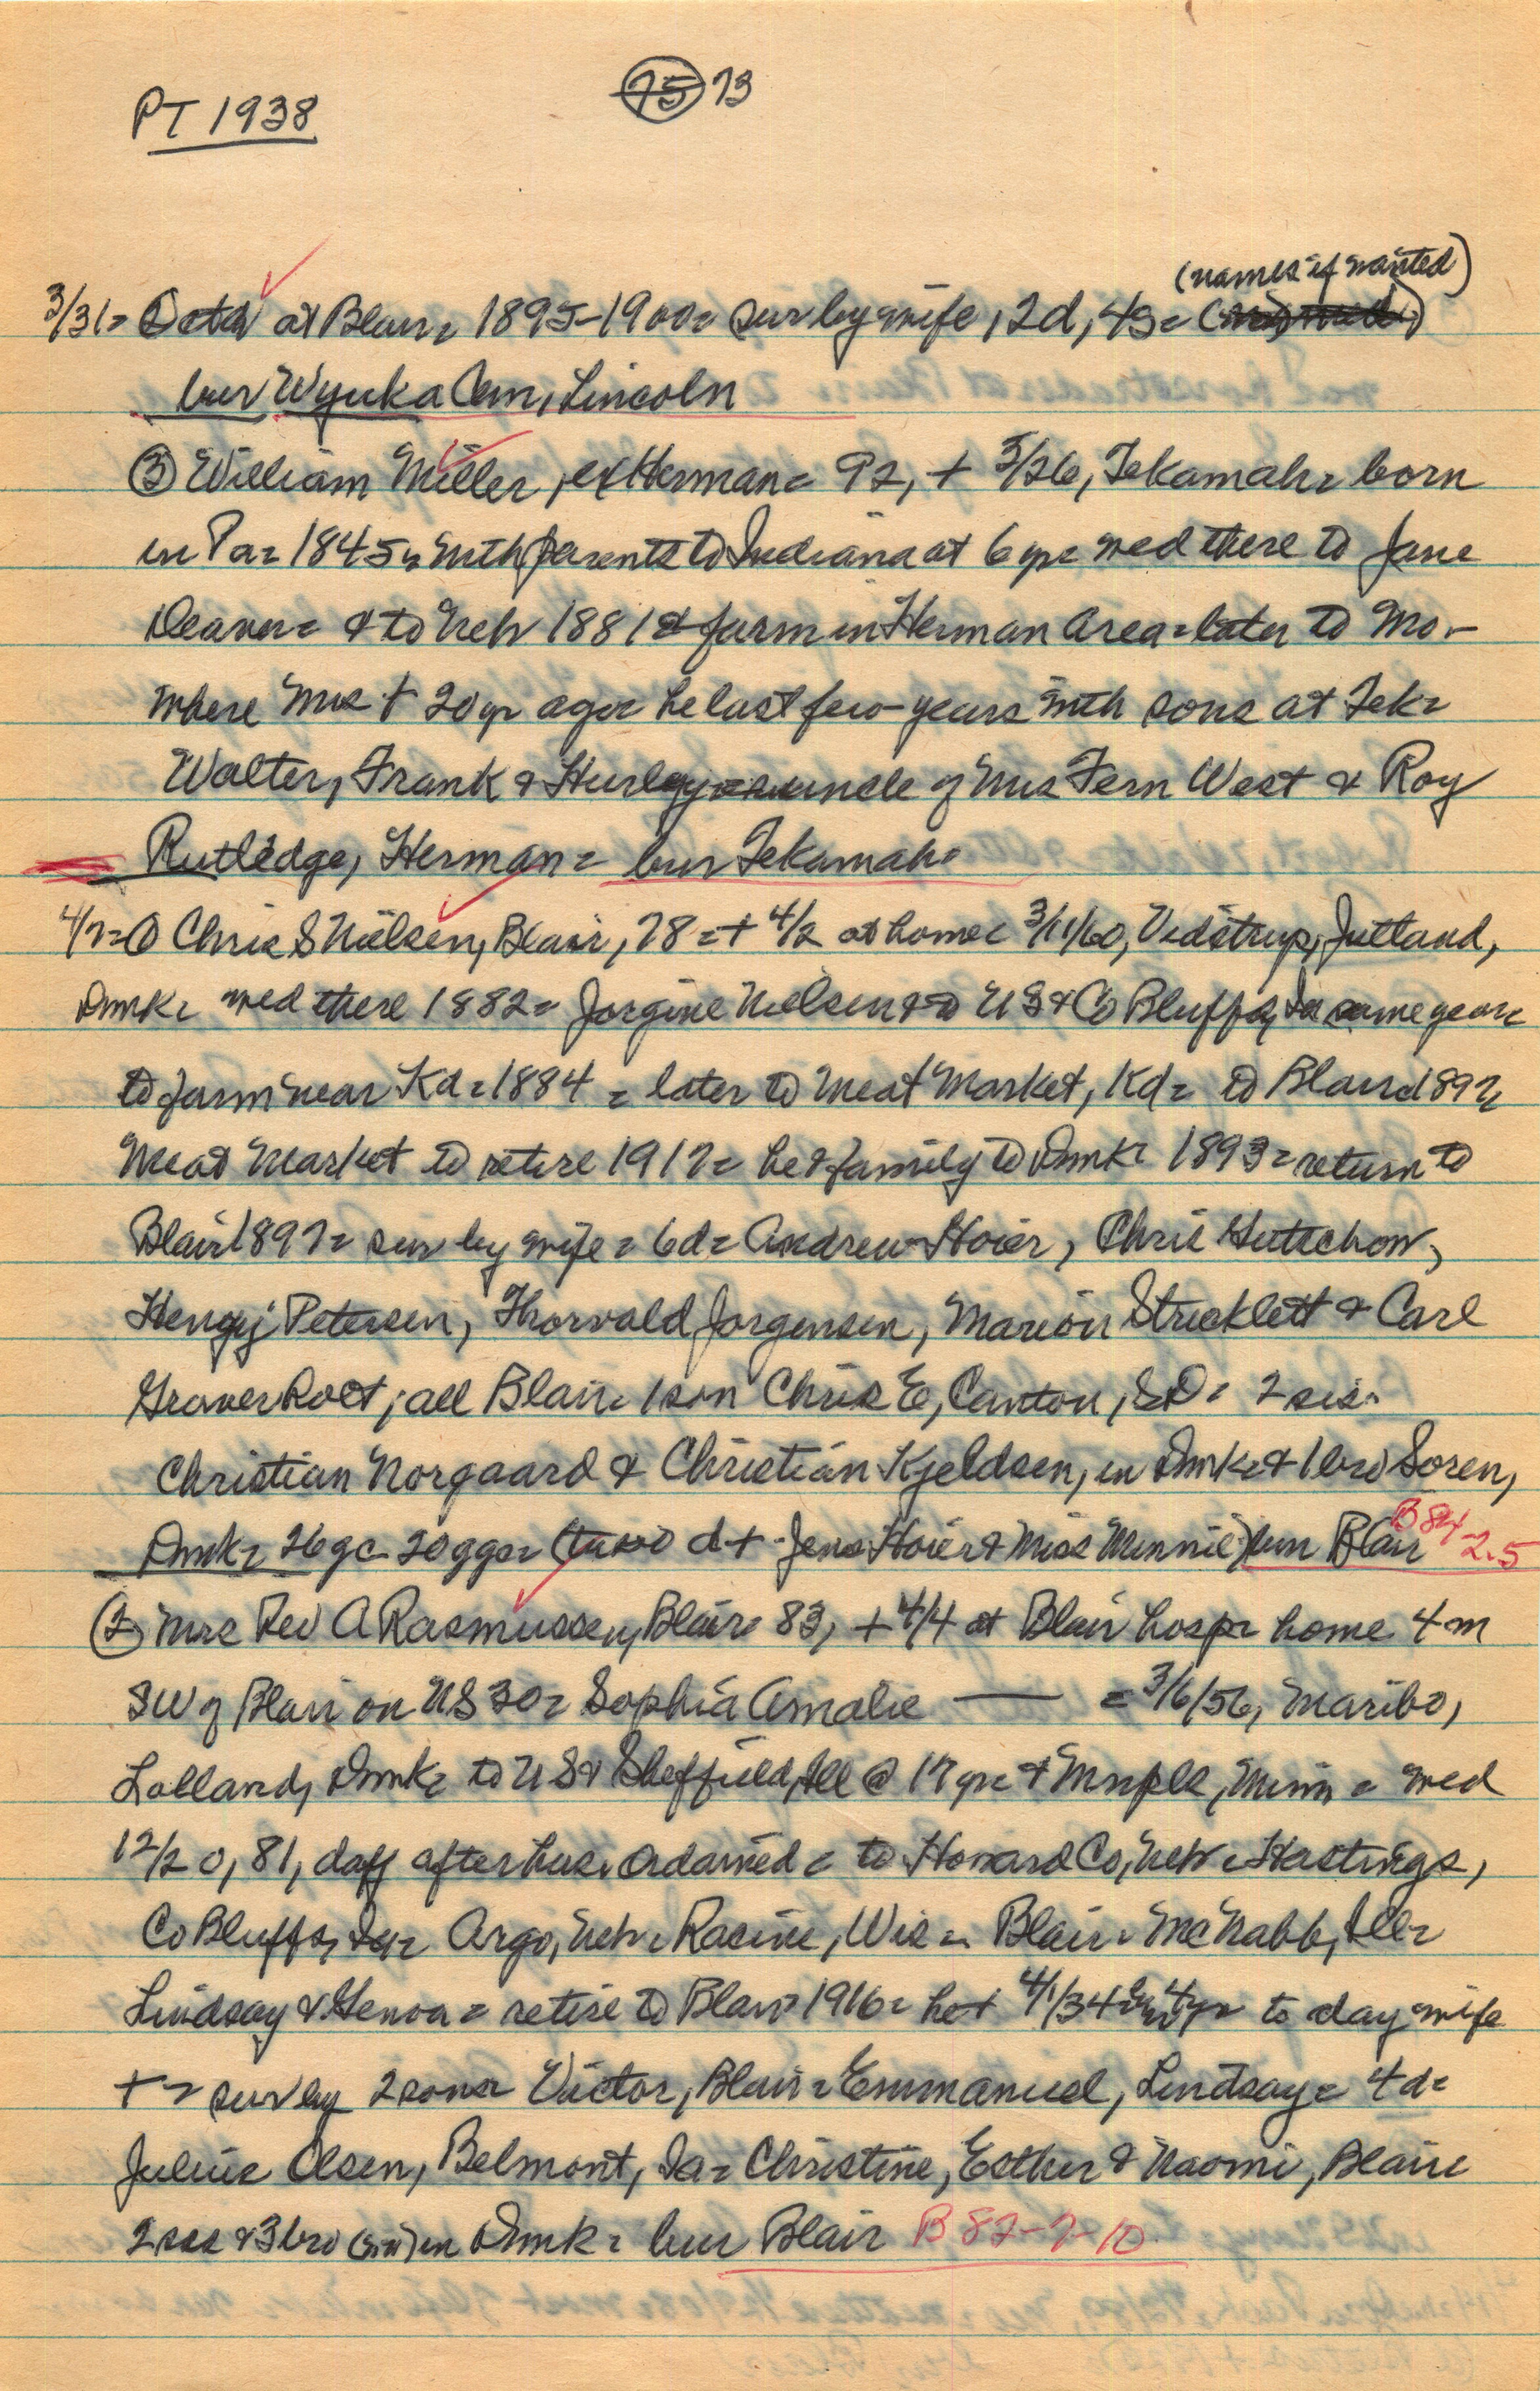 PT 1938
75 73
(names if wanted)
3/31= at Blair= 1895-1900= sur by wife, 2d, 4s=
bur Wyuka Cem, Lincoln
③ William Miller, ex Herman= 92, + 3/26, Tekamah= born
in Pa= 1845= with parents to Indiana at 6 yr= wed there to Jane
Deaver= & to Neb 1881 & farm in Herman area= later to Mo.-
where Mrs + 20 yr ago= he last few years with sons at Tek=
Walter, Frank & Hurley uncle of Mrs Fern West & Roy
Rutledge, Herman= bur Tekamah=
4/7=① Chris S Nielsen, Blair, 78=+ 4/2 at home= 3/11/60, Vidstrup, Jutland,
Dmk= wed there 1882= Jorgine Nielsen & to US & Co Bluffs, Ia same year=
to farm near Kd=1884 = later to Meat Market, Kd= to Blair 1892
Meat Market to retire 1917= he & family to Dmk= 1893= return to
Blair 1897= sur by wife= 6d= Andrew Hoier, Chris Huttchow,
Henry Petersen, Thorvald Jorgensen, Marion Stricklett & Carl
Graverholt; all Blair= 1 son Chris E, Canton, SD= 2 sis=
Christian Norgaard & Christian Kjeldsen, in Dmk= & 1 bro Soren,
Dmk= 26gc= 20ggc= (two d + Jens Hoier & Miss Minnie) bur Blair B 84-2.5
② Mrs Rev A Rasmussen, Blair= 83, + 4/4 at Blair hosp= home 4 m
SW of Blair on US 30= Sophia Amalie — = 3/6/56, Maribo,
Lolland, Dmk= to US & Sheffield, Ill @ 17 yr= & Mnpls, Minn = wed
12/20, 81, day after hus. ordained = to Howard Co, Neb= Hastings,
Co Bluffs, Ia= Argo, Neb= Racine, Wis= Blair= McNabb, Ill=
Lindsay & Genoa= retire to Blair 1916= he + 4/1/34 4 yr to day wife
+ = sur by 2 sons= Victor, Blair= Emmanuel, Lindsay= 4d=
Julius Olsen, Belmont, Ia= Christine, Esther & Naomi, Blair=
2 sis & 3 bro in Dmk= bur Blair B 82-7-10